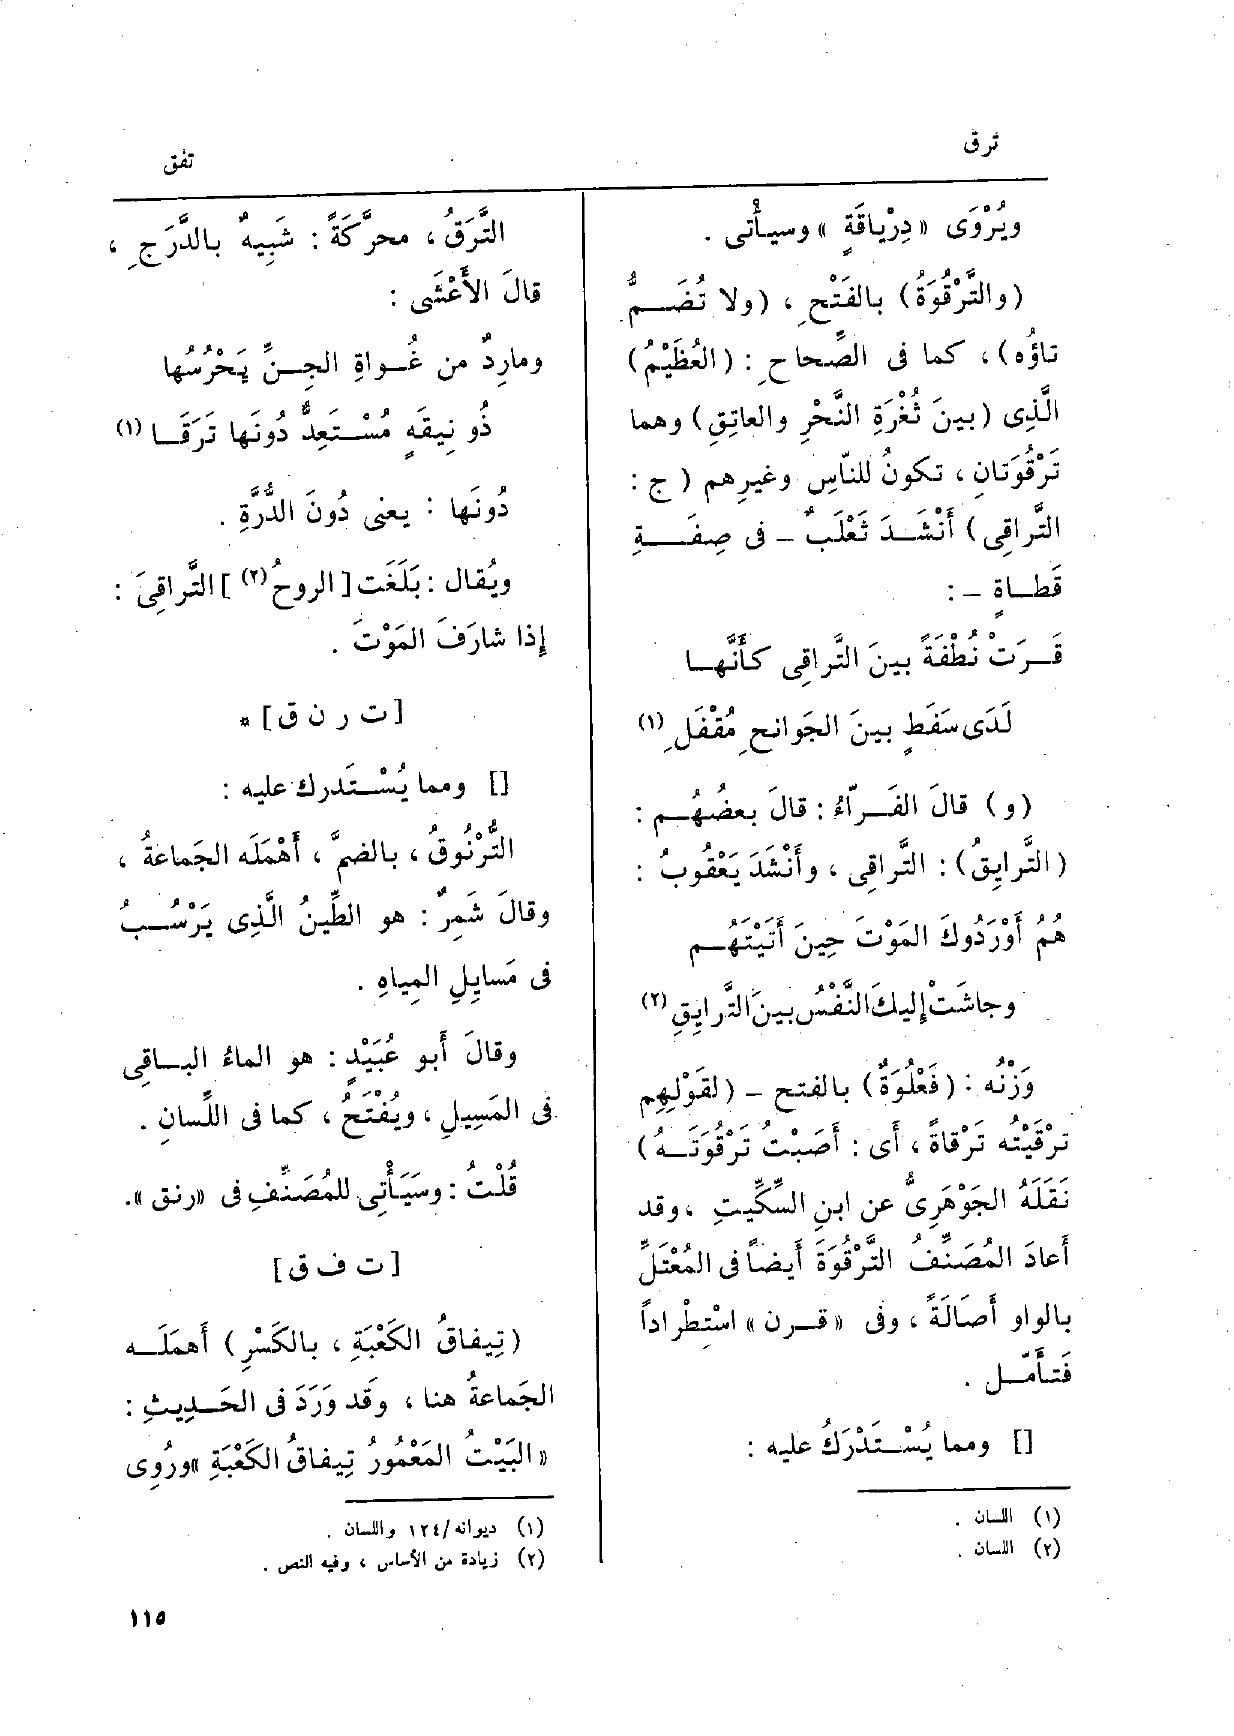 ترق
تفق
ويُرْوَى «دِرْياقَةٍ» وسيأتى .
(والتَّرْقُوَةُ) بالفَتْحِ ، (ولا تُضَمُّ
تاؤُه) ، كما فى الصِّحاحِ : (العُظَيْمُ)
الَّذِى (بينَ ثُغْرَةِ النَّحْرِ والعاتِقِ) وهما
تَرْقُوَتانِ ، تكونُ للنّاسِ وغيرِهم (ج :
التَّراقِى) أَنْشَدَ ثَعْلَبٌ – فى صِفَةِ
قَطاةٍ – :
قَرَتْ نُطْفَةً بينَ التَّراقِى كأَنَّها
لَدَى سَفَطٍ بينَ الجَوانحِ مُقْفَلِ (١)
(و) قالَ الفَرّاءُ : قالَ بعضُهُم :
(التَّرايِقُ) : التَّراقِى ، وأَنْشَدَ يَعْقُوبُ :
هُمُ أَوْرَدُوكَ المَوْتَ حِينَ أَتَيْتَهُم
وجاشَتْ إليكَ النَّفْسُ بينَ التَّرايِقِ (٢)
وَزْنُه : (فَعْلُوَةٌ) بالفتح – (لقَوْلِهِم
تَرْقَيْتُه تَرْقاةً ، أَى : أَصَبْتُ تَرْقُوَتَهُ)
نَقَلَهُ الجَوْهَرِىُّ عن ابنِ السِّكِّيتِ ، وقد
أَعادَ المُصَنِّفُ التَّرْقُوَةَ أَيضاً فى المُعْتَلِّ
بالواو أَصالَةً ، وفى «قرن» اسْتِطْراداً
فَتأَمّل .
[] ومما يُسْتَدْرَكُ عليه :
(١) اللسان .
(٢) اللسان .
التَّرَقُ ، محرَّكَةً : شَبِيهٌ بالدَّرَجِ ،
قالَ الأَعْشَى :
ومارِدٌ من غُواةِ الجِنِّ يَحْرُسُها
ذُو نِيقَةٍ مُسْتَعِدٌّ دُونَها تَرَقَا (١)
دُونَها : يعنى دُونَ الدُّرَّةِ .
ويُقال : بَلَغَت [الروحُ (٢)] التَّراقِىَ :
إِذا شارَفَ المَوْتَ .
[ت ر ن ق] *
[] ومما يُسْتَدرك عليه :
التُّرْنُوقُ ، بالضمِّ ، أَهْمَلَه الجَماعةُ ،
وقالَ شَمِرٌ : هو الطِّينُ الَّذِى يَرْسُبُ
فى مَسايِلِ المِياهِ .
وقالَ أَبو عُبَيْدٍ : هو الماءُ الباقِى
فى المَسِيلِ ، ويُفْتَحُ ، كما فى اللِّسانِ .
قُلْتُ : وسَيَأْتِى للمُصَنِّفِ فى «رنق» .
[ت ف ق]
(تِيفاقُ الكَعْبَةِ ، بالكَسْرِ) أَهمَلَه
الجَماعةُ هنا ، وقَد وَرَدَ فى الحَدِيثِ :
«البَيْتُ المَعْمُورُ تِيفاقُ الكَعْبَةِ» ورُوِى
(١) ديوانه/١٢٤ واللسان .
(٢) زيادة من الأساس ، وفيه النص .
١١٥